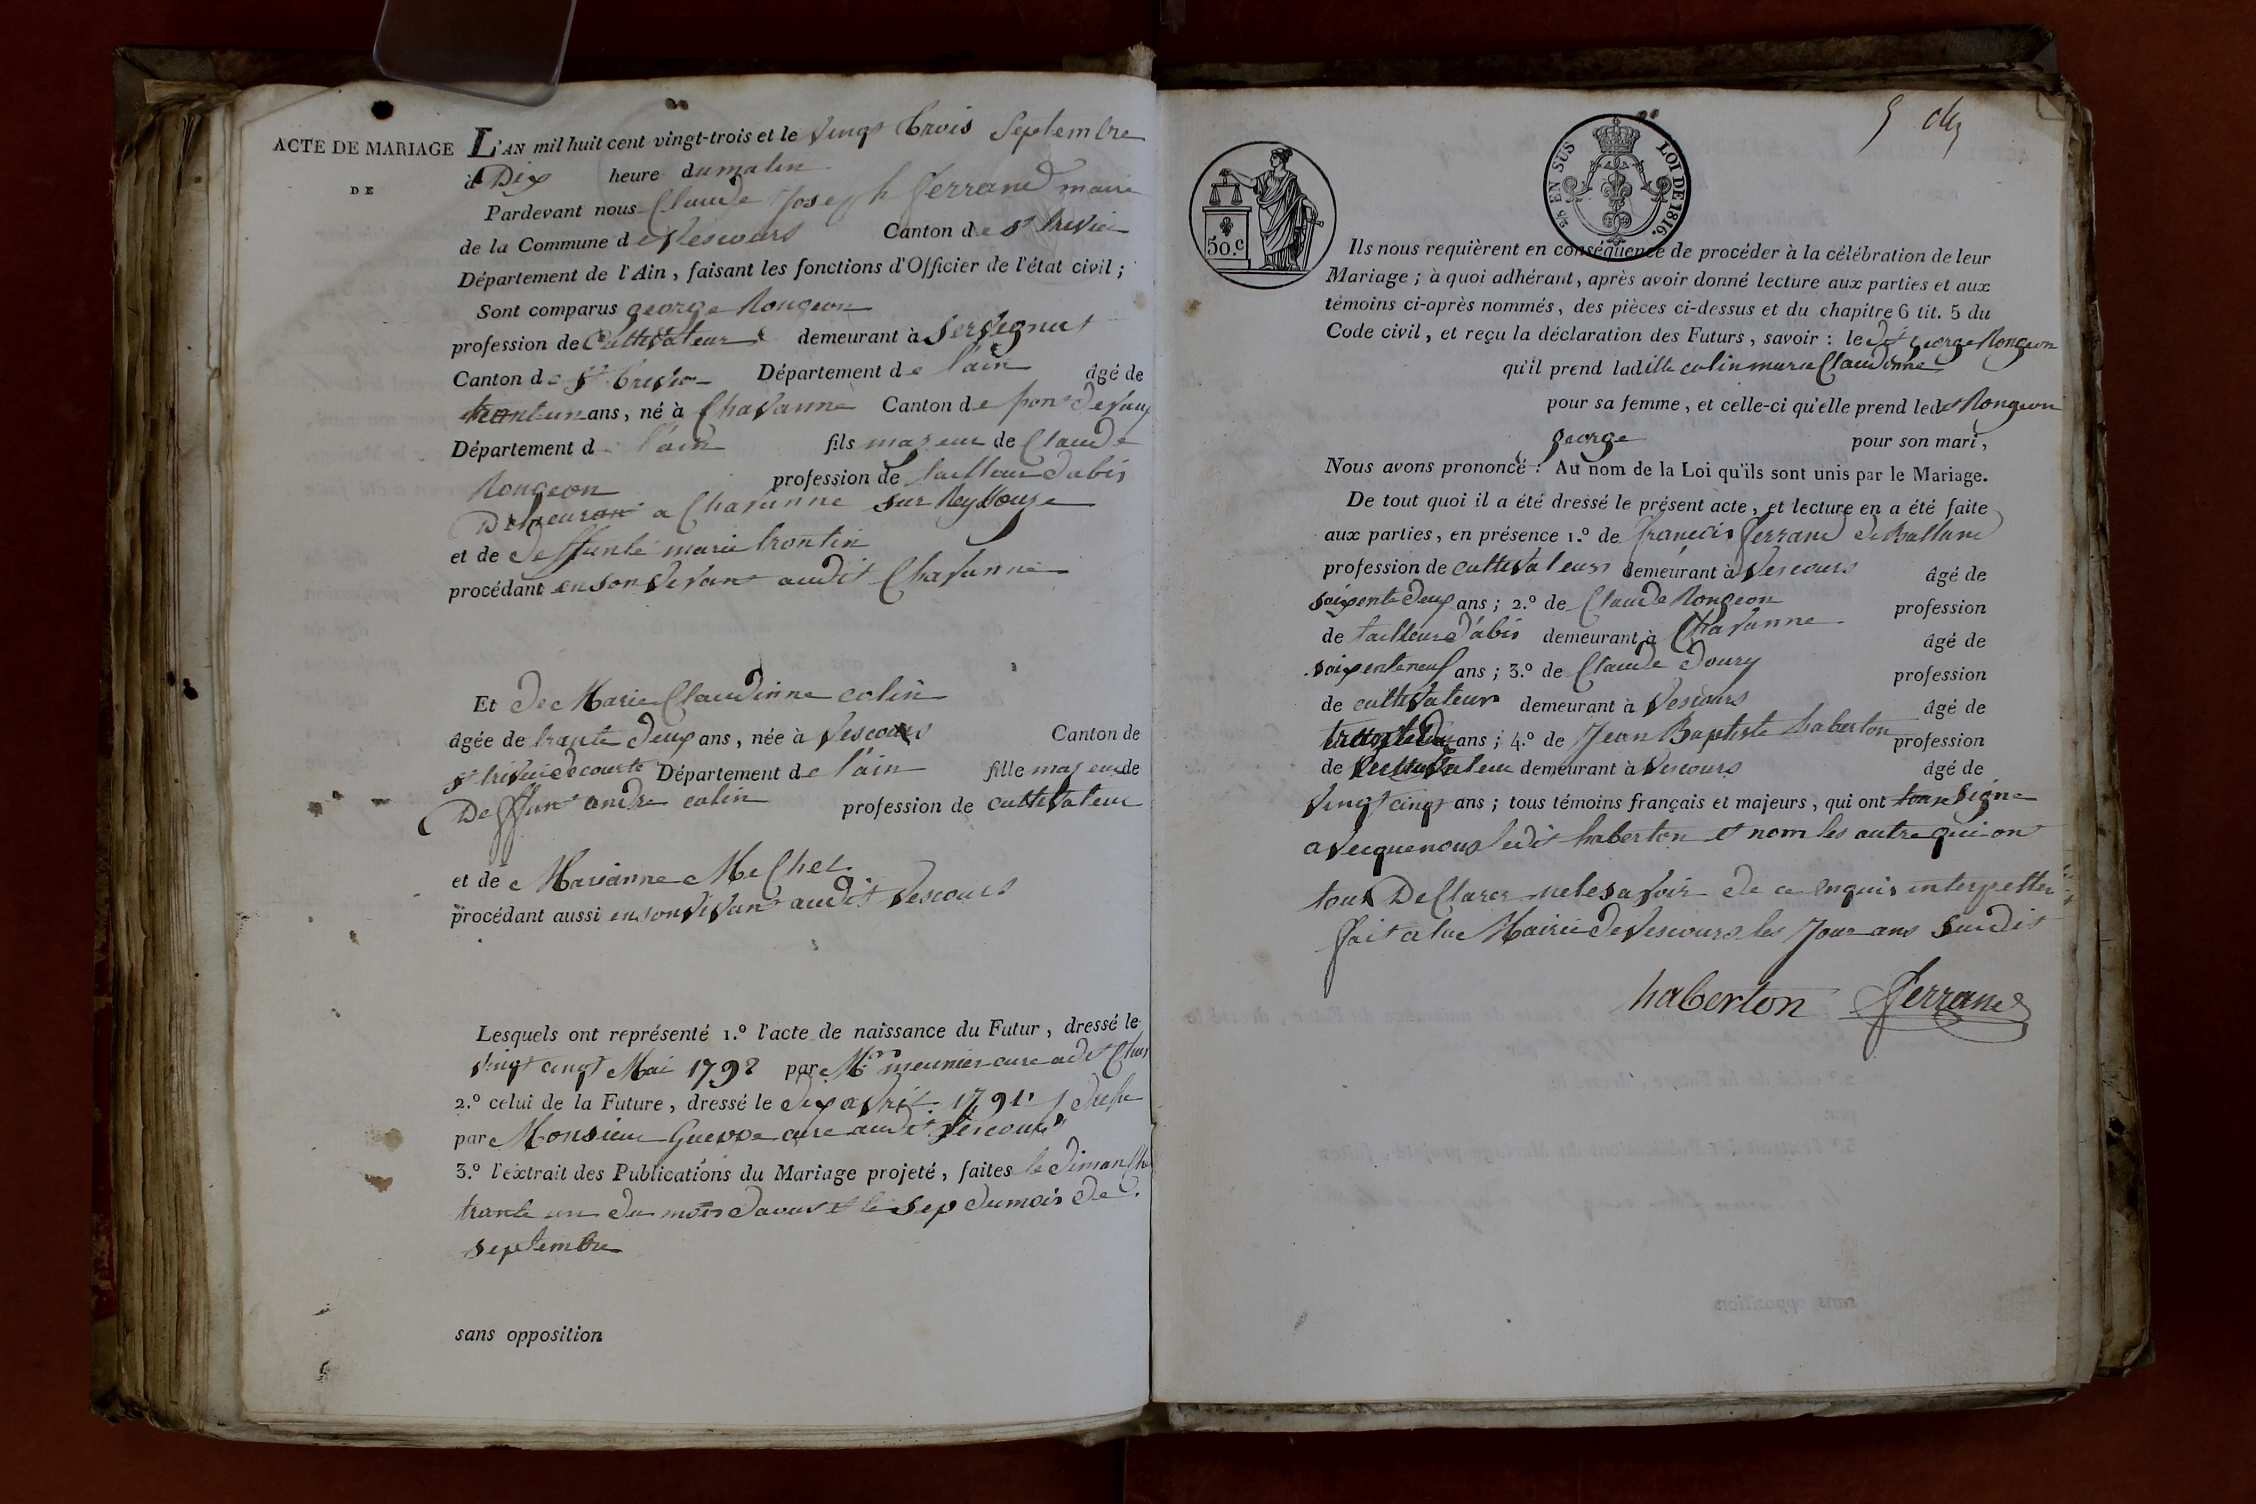 ACTE DE MARIAGE
DE
L'AN mil huit cent vingt-trois et le vingt trois Septembre
à Dix heure du matin
Pardevant nous Claude Joseph ferrand maire
de la Commune de Vescours Canton de St trivier
Département de l'Ain, faisant les fonctions d'Officier de l'état civil ;
Sont comparus george Rongeon
profession de Cultivateur demeurant à Servignat
Canton de St trivier Département de l'ain âgé de
trant un ans, né à Chavanne Canton de pont devaux
Département d l'ain fils majeur de Claude
Rongeon profession de tailleur dabis
Demeurant a Chavanne sur Reyssouze
et de deffunte marie trontin
procédant en son vivant audit Chavanne
Et de Marie Claudinne colin
âgée de trante deux ans, née à Vescours Canton de
st trivier de courte Département de l'ain fille majeur de
Deffunt andre colin profession de cultivateur
et de Marianne Michel
procédant aussi en son vivant audit Vescours
Lesquels ont représenté 1.º l'acte de naissance du Futur, dressé le
vingt cinqt Mai 1792 par Mr meunier cure adit Chav
2.º celui de la Future, dressé le dix avril 1791
par Monsieur cure audit Vescours
3.º l'extrait des Publications du Mariage projeté, faites le dimanche
trante un du mois davout et le sep du mois de
septembre
sans opposition
50.c
2/8 EN SUS LOI DE 1816.
Ils nous requièrent en conséquence de procéder à la célébration de leur
Mariage ; à quoi adhérant, après avoir donné lecture aux parties et aux
témoins ci-après nommés, des pièces ci-dessus et du chapitre 6 tit. 5 du
Code civil, et reçu la déclaration des Futurs, savoir : le dit george Rongeon
qu'il prend laditte colin marie Claudinne
pour sa femme, et celle-ci qu'elle prend ledit Rongeon
george pour son mari,
Nous avons prononcé : Au nom de la Loi qu'ils sont unis par le Mariage.
De tout quoi il a été dressé le présent acte, et lecture en a été faite
aux parties, en présence 1.º de francois ferrand
profession de cultivateur demeurant à Vescours âgé de
soixente deux ans ; 2.º de Claude Rongeon profession
de tailleur d'abis demeurant à Chavanne âgé de
soixente neuf ans ; 3.º de Claude Doury profession
de cultivateur demeurant à Vescours âgé de
ans ; 4.º de Jean Baptiste haberton profession
de demeurant à Vescours âgé de
vingt cinqt ans ; tous témoins français et majeurs, qui ont signe
avecque nous ledit haberton et nom les autre qui ont
tous Declarer ne le savoir de ce enquis interpetter
fait a la Mairie de Vescours les Jour ans susdit
haberton ferrand